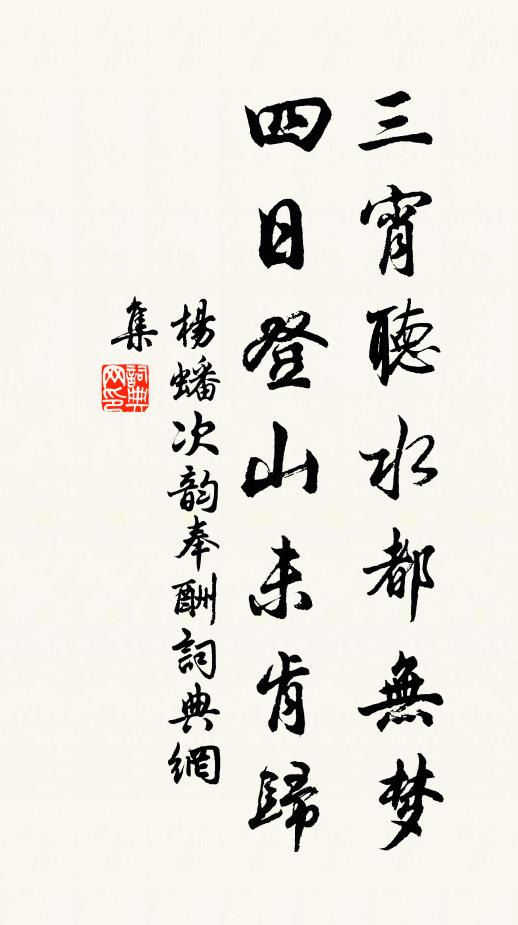 三宵聽水都無梦
四日登山未肯歸
楊蟠次韵奉酬詞典網
集
詞典网印